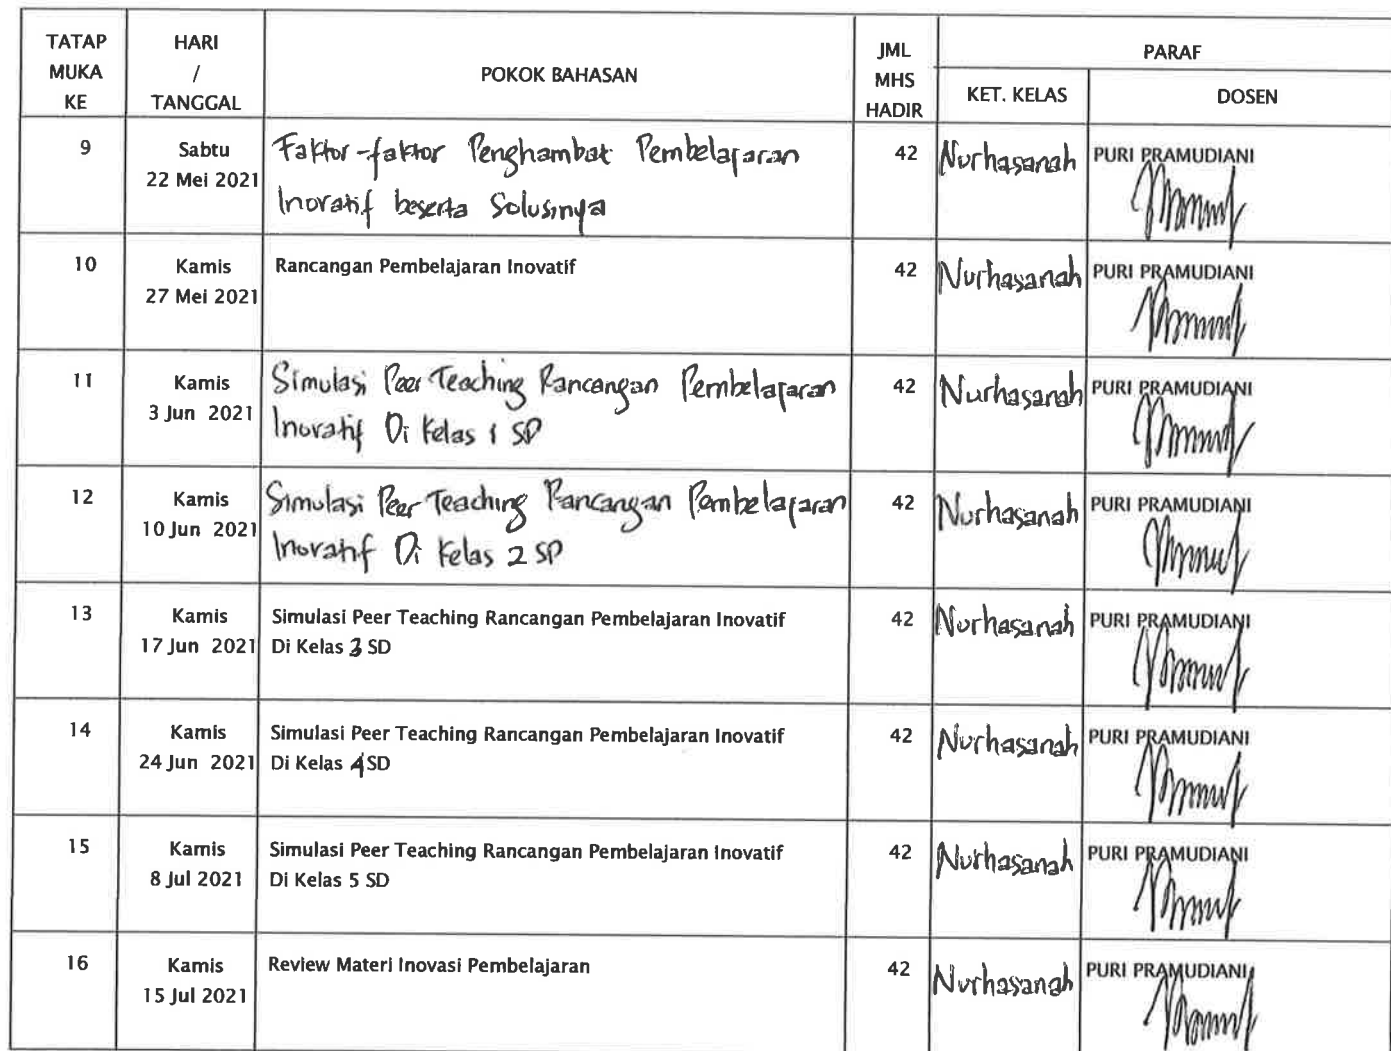 TATAP MUKA KE
HARI / TANGGAL
POKOK BAHASAN
JML MHS HADIR
PARAF
KET. KELAS
DOSEN
9
Sabtu
22 Mei 2021
Faktor-faktor Penghambat Pembelajaran
Inovatif beserta Solusinya
42
Nurhasanah
PURI PRAMUDIANI
10
Kamis
27 Mei 2021
Rancangan Pembelajaran Inovatif
42
Nurhasanah
PURI PRAMUDIANI
11
Kamis
3 Jun 2021
Simulasi Peer Teaching Rancangan Pembelajaran
Inovatif Di Kelas 1 SD
42
Nurhasanah
PURI PRAMUDIANI
12
Kamis
10 Jun 2021
Simulasi Peer Teaching Rancangan Pembelajaran
Inovatif Di Kelas 2 SD
42
Nurhasanah
PURI PRAMUDIANI
13
Kamis
17 Jun 2021
Simulasi Peer Teaching Rancangan Pembelajaran Inovatif
Di Kelas 3 SD
42
Nurhasanah
PURI PRAMUDIANI
14
Kamis
24 Jun 2021
Simulasi Peer Teaching Rancangan Pembelajaran Inovatif
Di Kelas 4 SD
42
Nurhasanah
PURI PRAMUDIANI
15
Kamis
8 Jul 2021
Simulasi Peer Teaching Rancangan Pembelajaran Inovatif
Di Kelas 5 SD
42
Nurhasanah
PURI PRAMUDIANI
16
Kamis
15 Jul 2021
Review Materi Inovasi Pembelajaran
42
Nurhasanah
PURI PRAMUDIANI